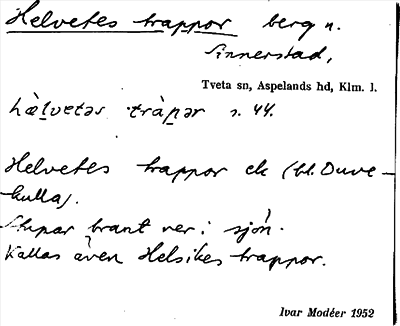 Helvetes trappor berg n.
Sinnerstad,
Tveta sn, Aspelands hd, Klm. l.
hæ̀lvetəs tràpər s. 44.
Helvetes trappor ek (bl. Duve-
kulla).
Stupar brant ner i sjön.
Kallas även Helsikes trappor.
Ivar Modéer 1952